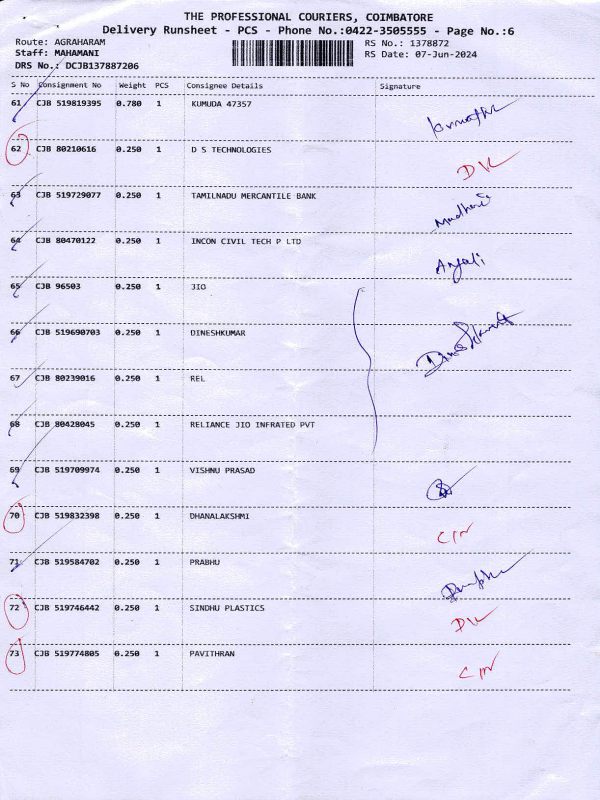 THE PROFESSIONAL COURIERS, COIMBATORE
Delivery Runsheet - PCS - Phone No.:0422-3505555 - Page No.:6
Route: AGRAHARAM
RS No.: 1378872
Staff: MAHAMANI
RS Date: 07-Jun-2024
DRS No.: DCJB137887206
S No Consignment No Weight PCS Consignee Details Signature
61 CJB 519819395 0.780 1 KUMUDA 47357
62 CJB 80210616 0.250 1 D S TECHNOLOGIES
63 CJB 519729077 0.250 1 TAMILNADU MERCANTILE BANK
64 CJB 80470122 0.250 1 INCON CIVIL TECH P LTD Anjali
65 CJB 96503 0.250 1 JIO
66 CJB 519690703 0.250 1 DINESHKUMAR
67 CJB 80239016 0.250 1 REL
68 CJB 80428045 0.250 1 RELIANCE JIO INFRATED PVT
69 CJB 519709974 0.250 1 VISHNU PRASAD
70 CJB 519832398 0.250 1 DHANALAKSHMI
71 CJB 519584702 0.250 1 PRABHU
72 CJB 519746442 0.250 1 SINDHU PLASTICS
73 CJB 519774805 0.250 1 PAVITHRAN